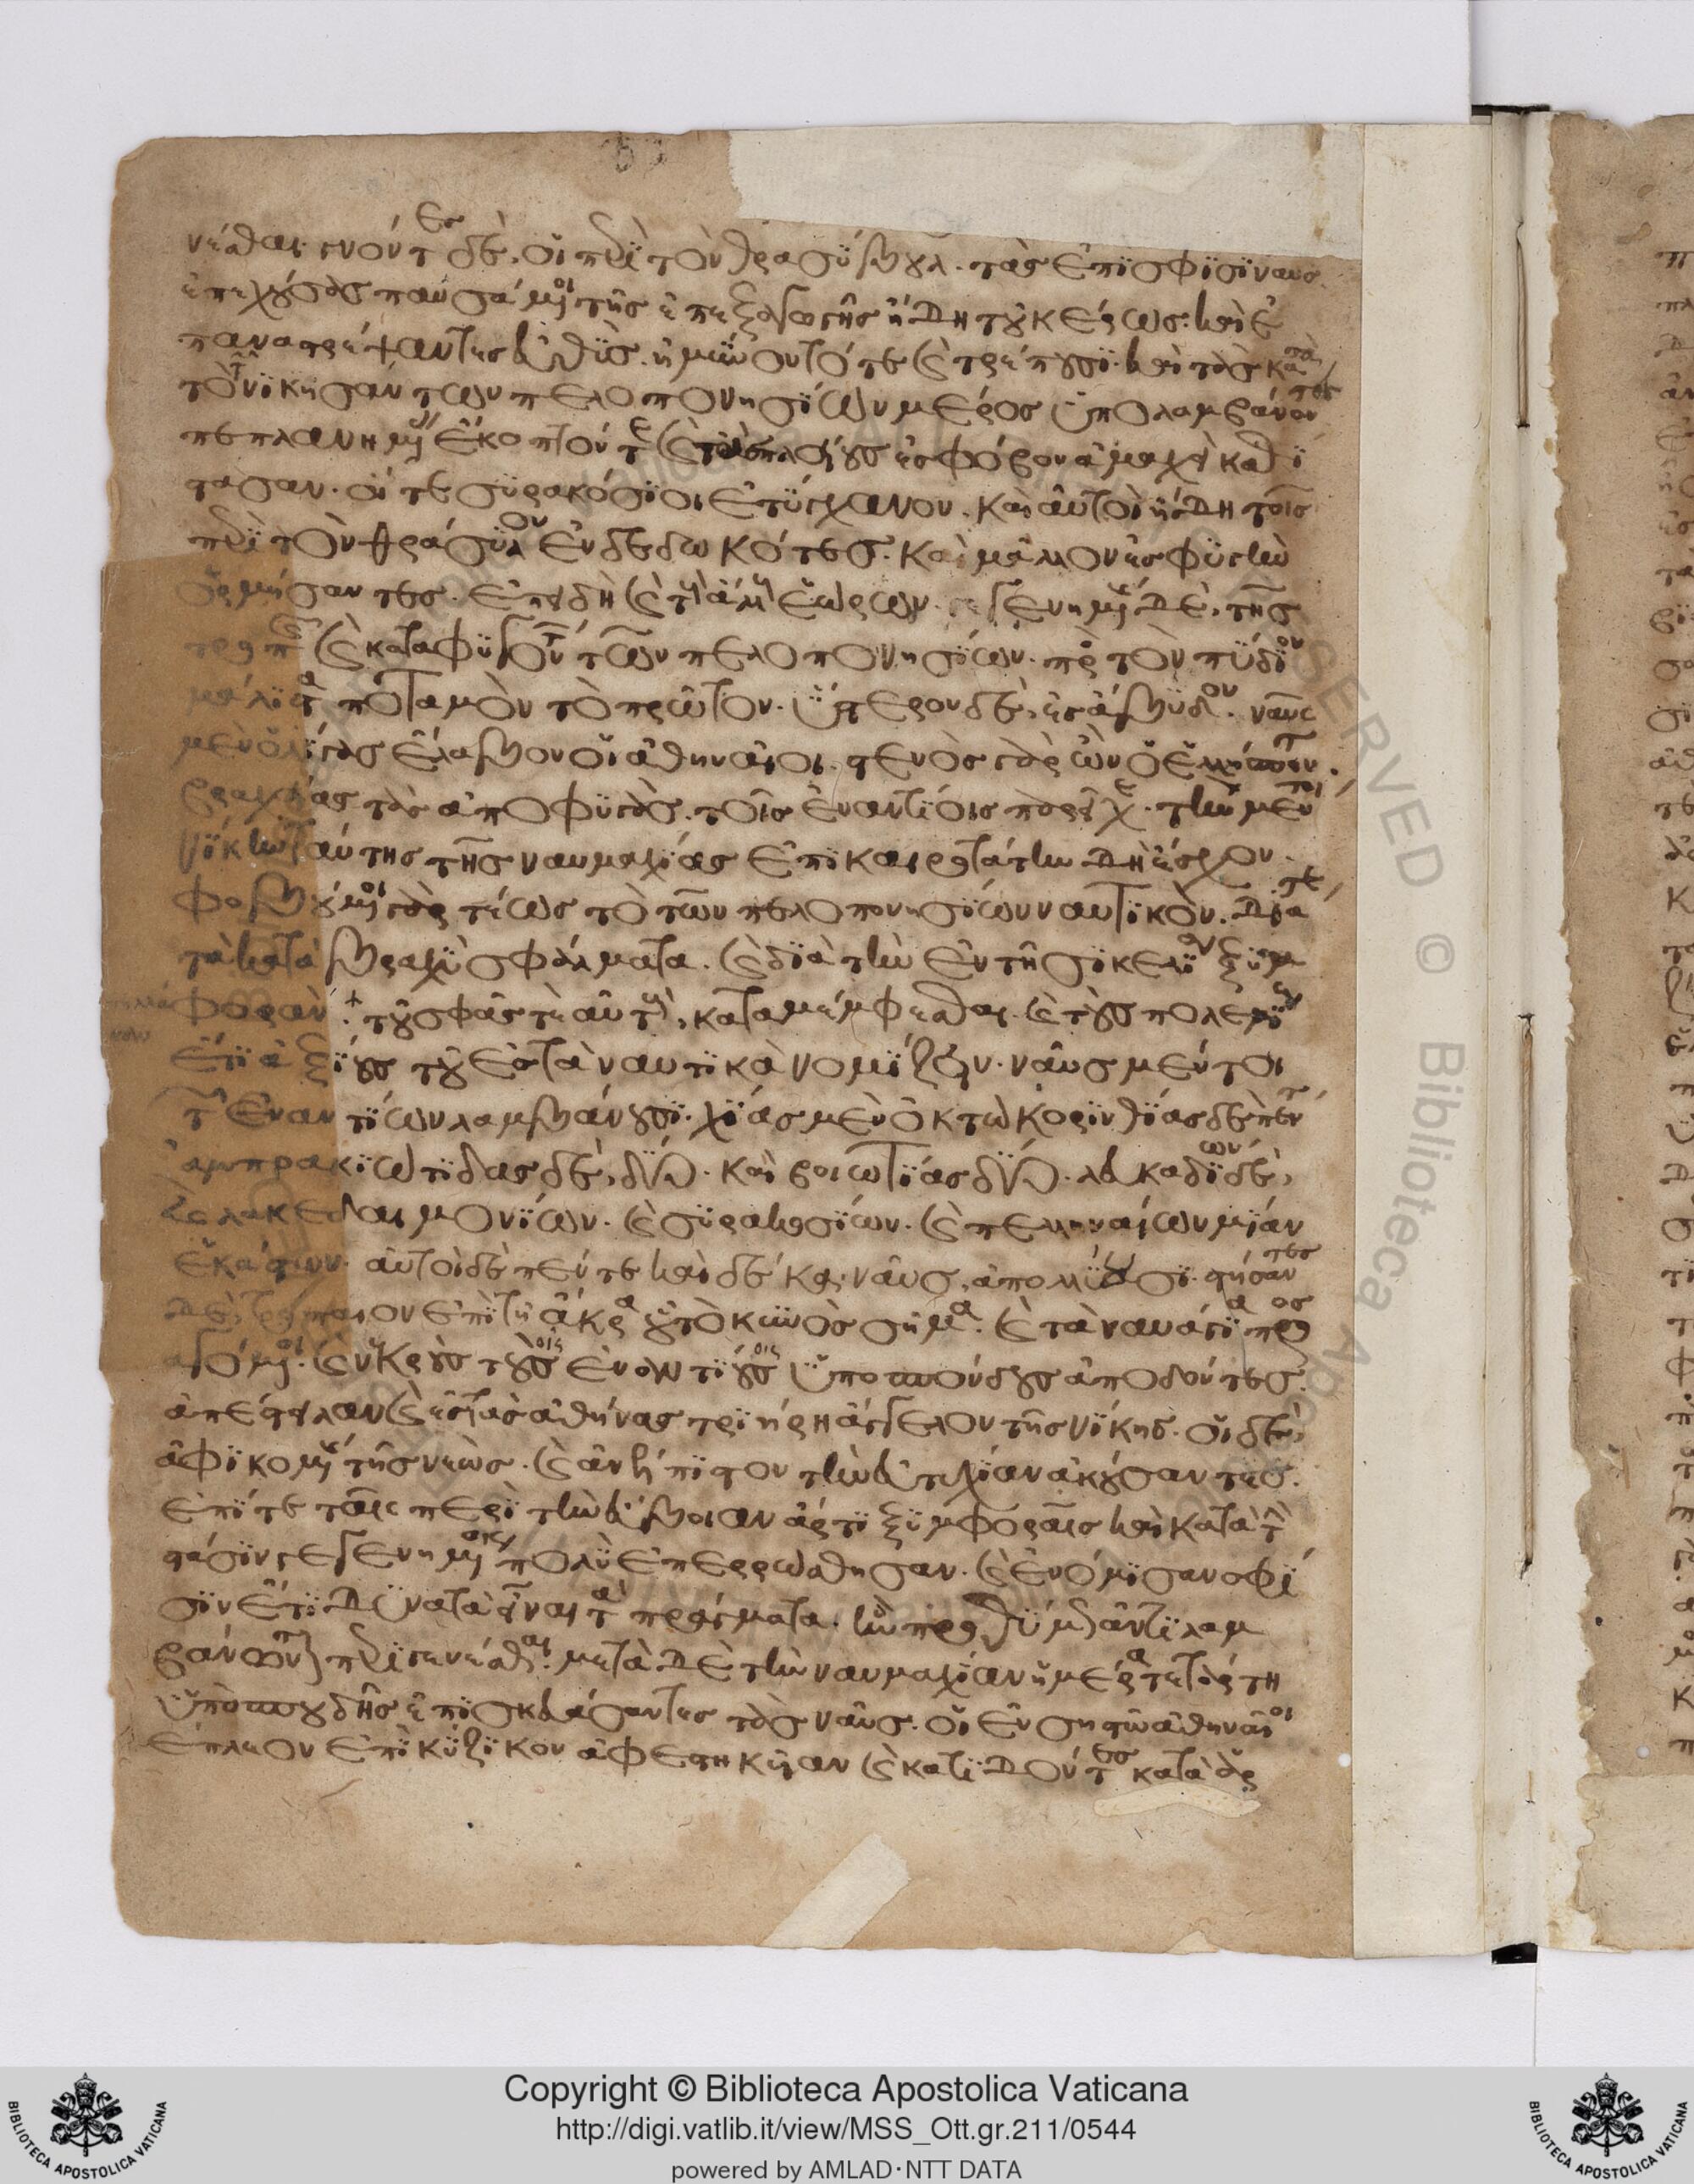 νέσθαι. γνόντες δὲ, οἱ περὶ τὸν θρασύβουλ. τὰς ἐπὶ σφίσι ναυς
ἐπεχούσας παυσάμενοι τῆς ἐπεξαγωγῆς ἤδη τοῦ κέρως. καὶ ἐ
παναστρέψαντες εὐθὺς. ἠμύνοντό τε καὶ τρέπουσι. καὶ τὰς κατὰ
τὸ νικῆσαν τῶν πελοποννησίων μέρος ὑπολαμβάνοντες
πεπλανημένας ἔκοπτόν τε καὶ τὰς πλείους ἐς φόβον ἀμαχεὶ καθί
στασαν. οἵ τε συρακόσιοι ἐτύγχανον. καὶ αὐτοὶ ἤδη τοῖς
περὶ τὸν θράσυλον ἐνδεδωκότες. καὶ μᾶλλον ἐς φυγὴν
ὁρμήσαντες. ἐπειδὴ καὶ τοὺς ἄλλους ἑώρων. γεγενημένης δὲ, τῆς
τροπῆς καὶ καταφυγόντων τῶν πελοποννησίων. πρὸς τὸν πύδιον
μάλιστα ποταμὸν τὸ πρῶτον. ὕστερον δὲ, ἐς ἄβυδον. ναῦς
μὲν ὀλίγας ἔλαβον οἱ ἀθηναῖοι. στενὸς γὰρ ὢν ὁ ἑλλήσποντος.
βραχείας τὰς ἀποφυγὰς. τοῖς ἐναντίοις παρεῖχε. τὴν μέντοι
νίκην ταύτης τῆς ναυμαχίας ἐπικαιροτάτην δὴ ἔσχον.
φοβούμενοι γὰρ τέως τὸ τῶν πελοποννησίων ναυτικὸν. διά τε
τὰ κατὰ βραχὺ σφάλματα. καὶ διὰ τὴν ἐν τῇ σικελίᾳ ξυμ
φορὰν. τοῦ σφᾶς τε αὐτοὺς, καταμέμφεσθαι. καὶ τοὺς πολεμίους
ἔτι ἀξίους του ἐς τὰ ναυτικὰ νομίζειν. ναῦς μέντοι
τῶν ἐναντίων λαμβάνουσι. χίας μὲν ὀκτὼ κορινθίας δὲ πέντε
ἀμπρακιώτιδας δὲ, δύο. καὶ βοιωτίας δύο. λευκαδίων δὲ,
καὶ λακεδαιμονίων. καὶ συρακοσίων. καὶ πελληναίων μίαν
ἑκάστων. αὐτοὶ δὲ πέντε καὶ δέκα. ναῦς, ἀπολλύουσι. στήσαντες
δὲ, τροπαῖον ἐπὶ τῇ ἄκρᾳ οὗ τὸ κυνὸς σῆμα. καὶ τὰ ναυάγια προς
αγόμενοι. καὶ νεκροὺς τοῖς ἐναντίοις ὑποσπόνδους ἀποδόντες.
ἀπέστειλαν καὶ ἐς τὰς ἀθήνας τριήρη ἄγγελον τῆς νίκης. οἱ δὲ,
ἀφικομένης τῆς νεὼς. καὶ ἀνέλπιστον τὴν εὐτυχίαν ἀκούσαντες.
ἐπί τε ταῖς περὶ τὴν εὔβοιαν ἄρτι ξυμφοραῖς καὶ κατὰ τὴν
στάσιν γεγενημέναις πολὺ ἐπερρώσθησαν. καὶ ἐνόμισαν σφί
σιν ἔτι δυνατὰ εἶναι τὰ πράγματα. ἢν προθύμως ἀντιλαμ
βάνωνται περιγενέσθαι. μετὰ δὲ τὴν ναυμαχίαν ἡμέρᾳ τετάρτη
ὑπὸ σπουδῆς ἐπισκευάσαντες τὰς ναῦς. οἱ ἐν σηστῶ ἀθηναῖοι
ἔπλεον ἐπὶ κύζικον ἀφεστηκυῖαν καὶ κατιδόντες κατὰ ἁρ
Copyright © Biblioteca Apostolica Vaticana
http://digi.vatlib.it/view/MSS_Ott.gr.211/0544
powered by AMLAD·NTT DATA